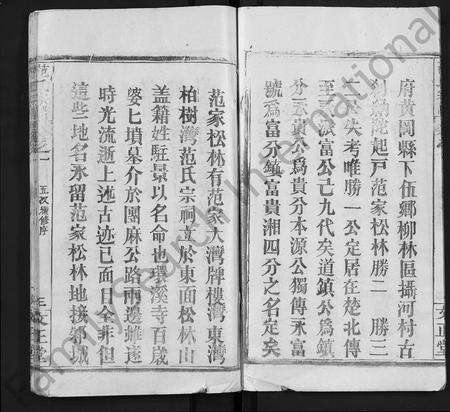 府黄岡縣下伍鄉柳林區攝河村古
起戸范家松林勝二　勝三
失考唯勝一公定居在楚北傳
至	富公己九代矣道鎮公爲鎮
分永貴公爲貴分本源公獨傳永富
號爲富分鎮富貴湘四分之名定矣
范家松林有范家大灣牌樓灣東灣
柏樹灣范氏宗祠立於東面松林山
盖籍姓駐景以名命也環溪寺百歲
婆七墳墓介於閻麻公路兩邊雖逢
時光流逝上述古迹已面目全非但
這些地名永留范家松林地接鄒城
五次續修序
文正堂
文正堂
FamilySearch International